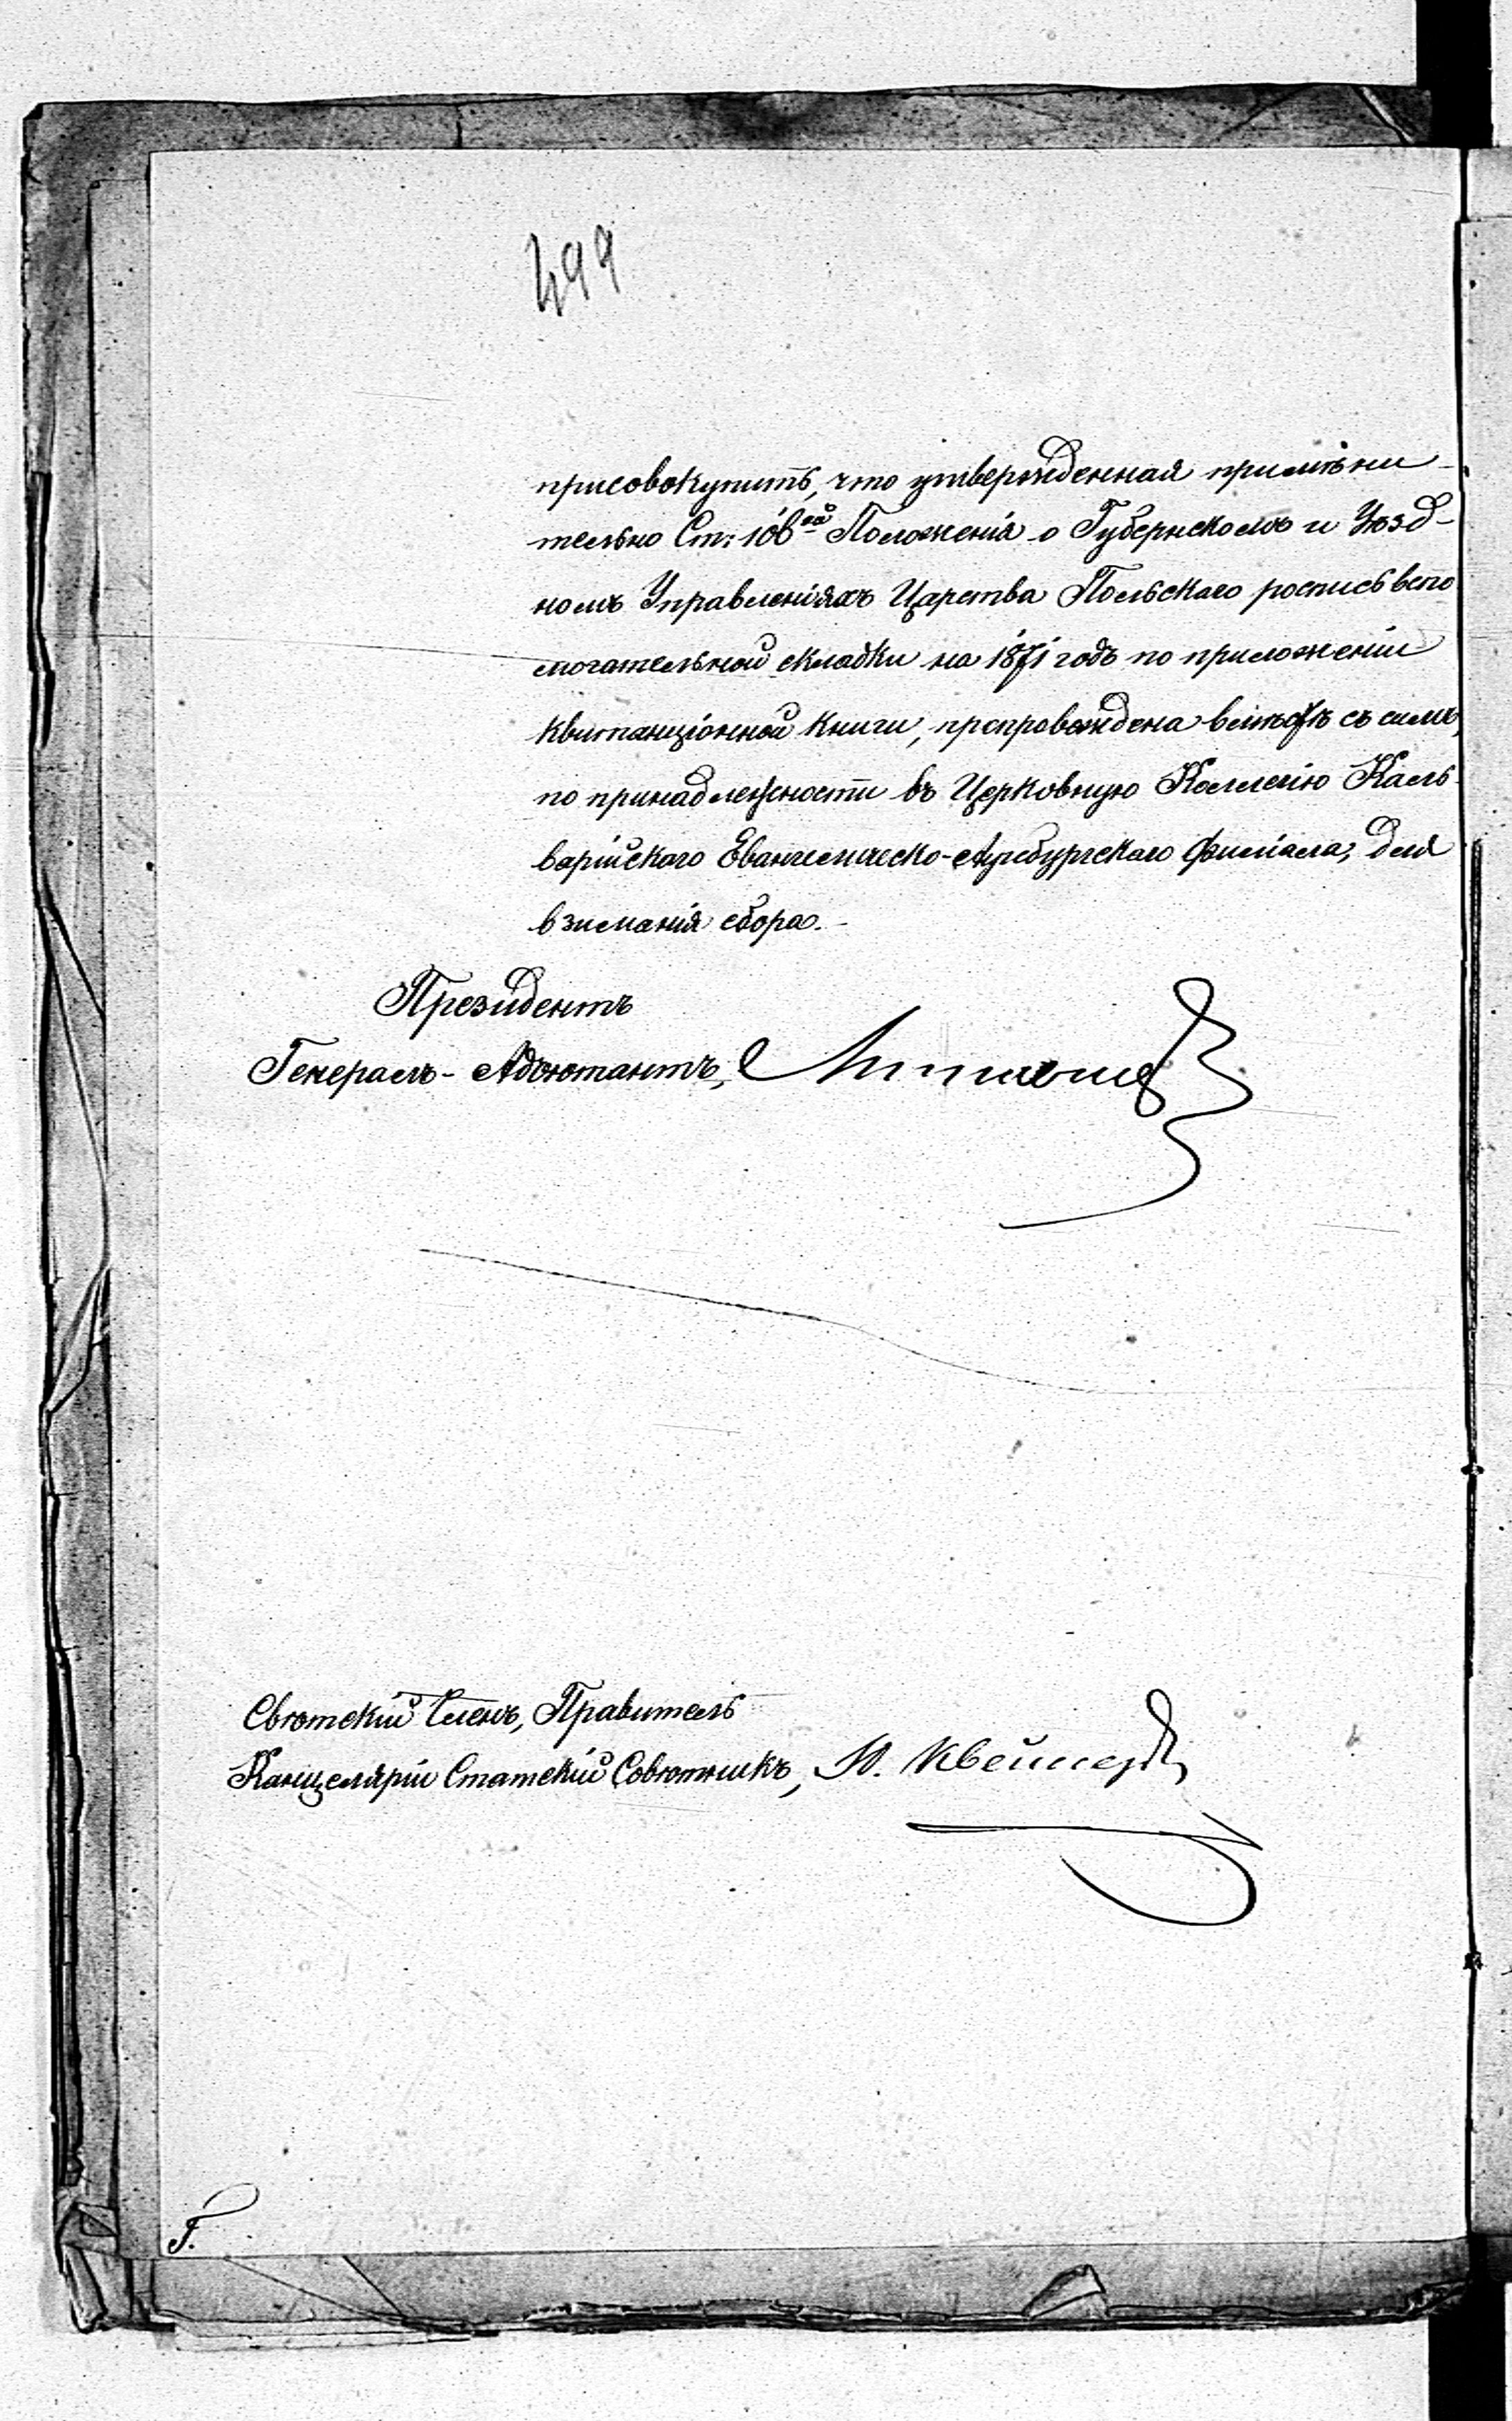 499
присовокупить, что утвержденная примѣни-
тельно Ст: 106ой Положенія о Губернскомъ и Уѣзд-
номъ Управленіяхъ Царства Польскаго роспись вспо
могательной складки на 1871 годъ по приложеніи
квитанціонной книги, препровождена вмѣстѣ съ симъ,
по принадлежности въ Церковную Коллегію Каль-
варійскаго Евангелическо-Аугсбургскаго Филіала, для
взиманія сбора.-
Президентъ
Генералъ-Адъютантъ,
Свѣтскій Членъ, Правитель
Канцеляріи Статскій Совѣтникъ, Ю.